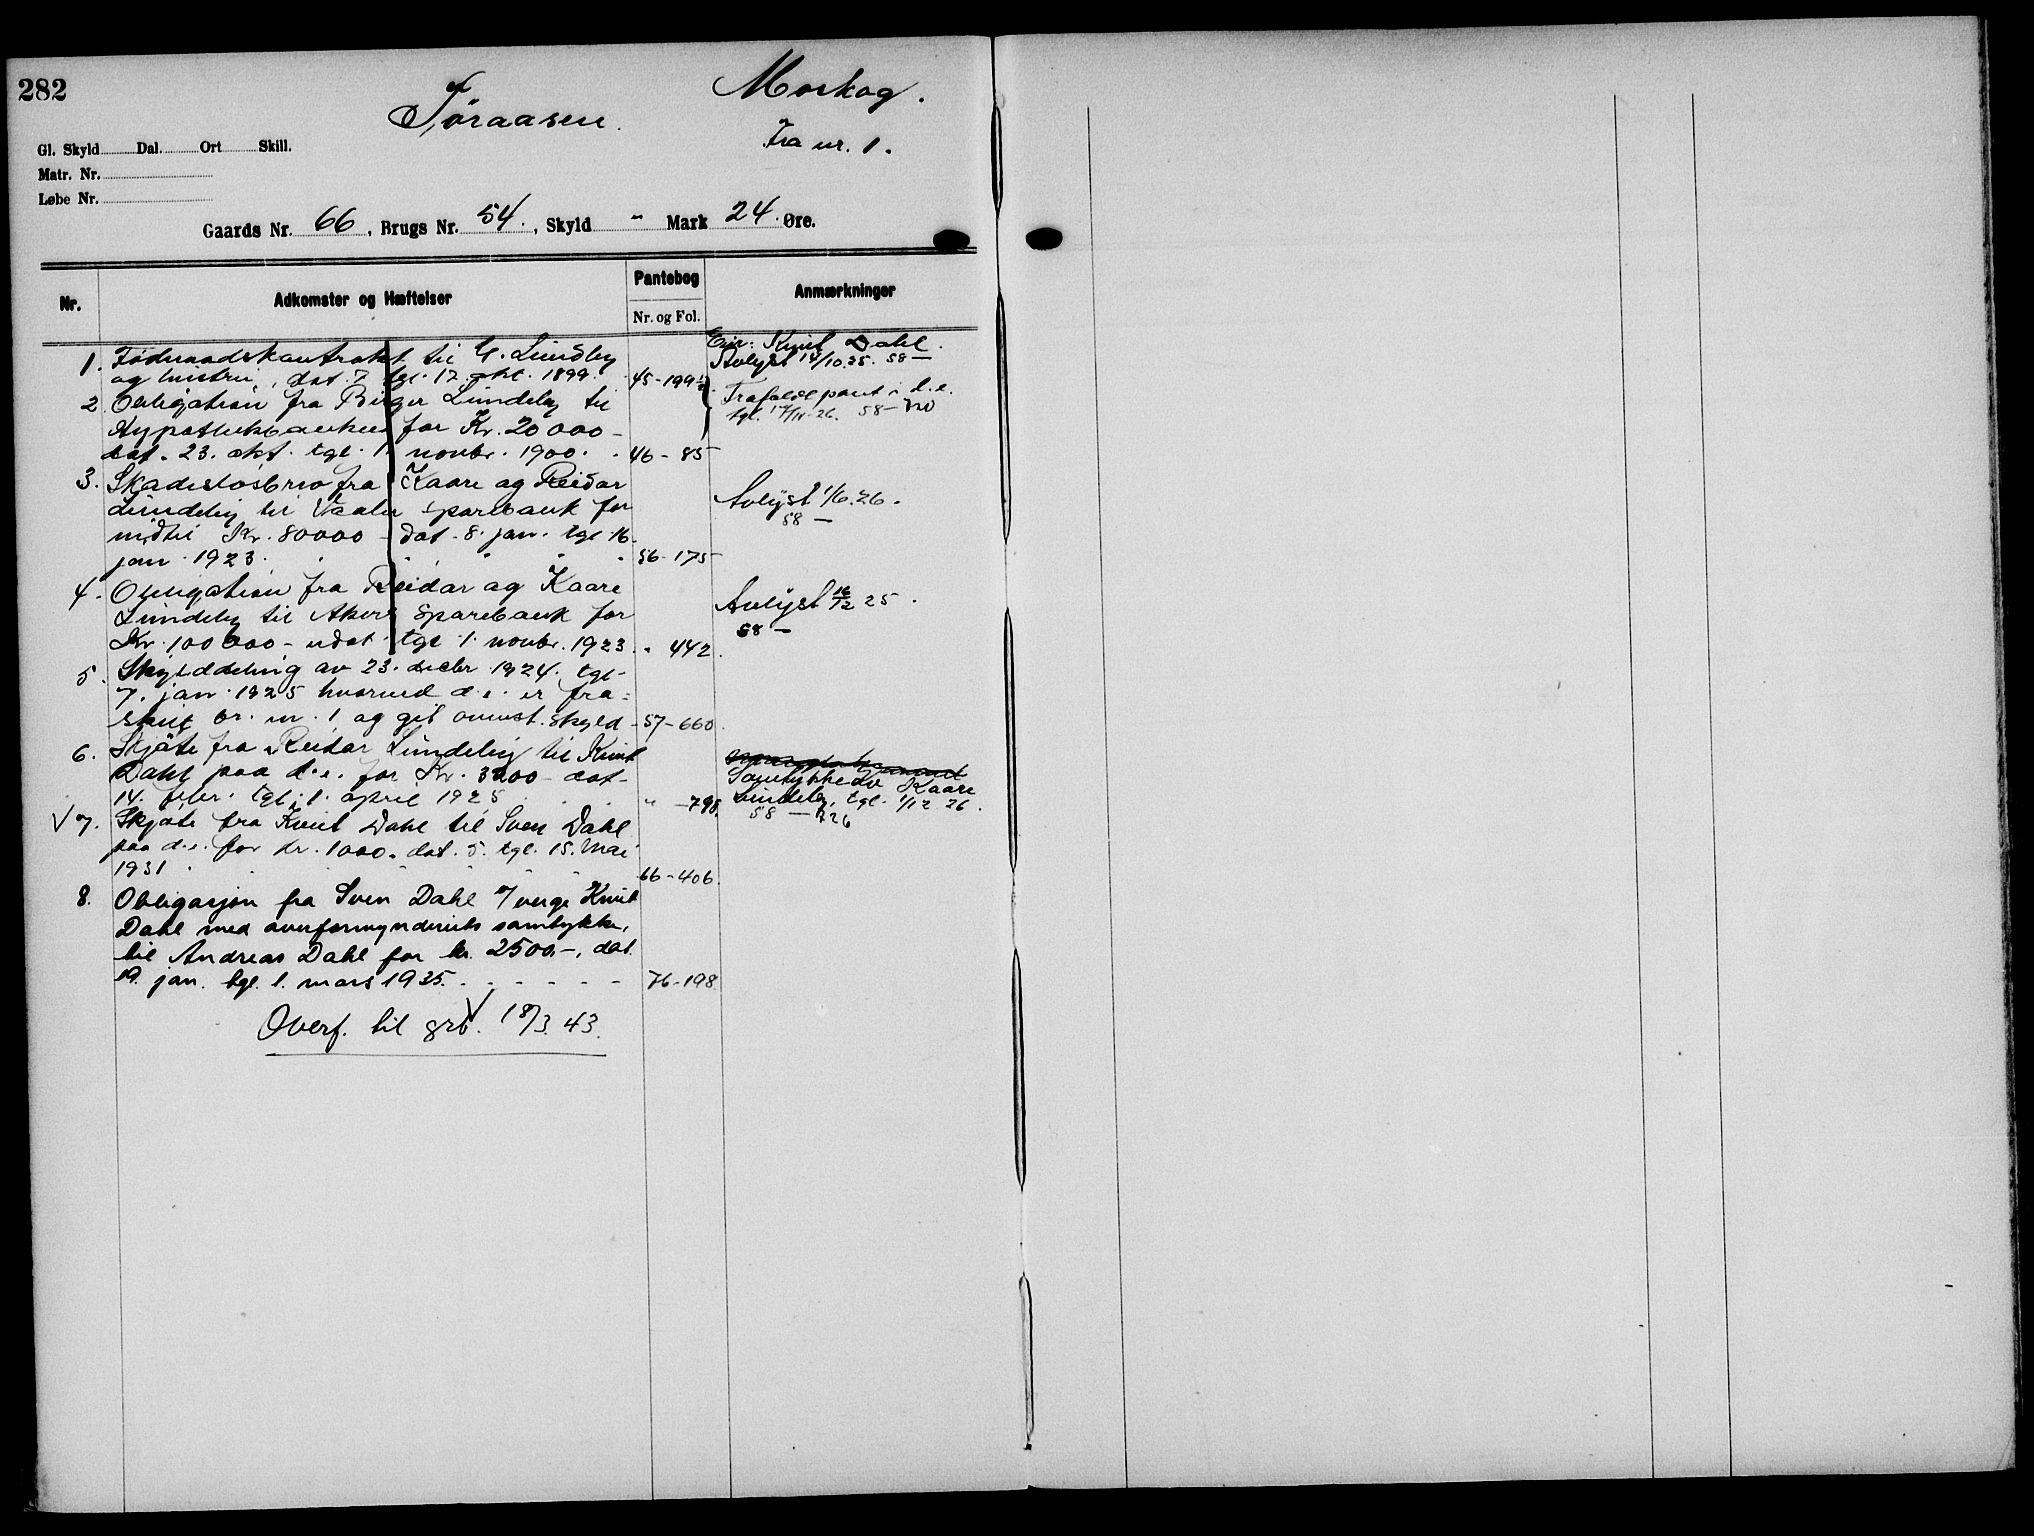 282
Føraasen.
Morskog.
Fra nr. 1.
Gl. Skyld Dal. Ort Skill.
Matr. Nr.
Løbe Nr.
Gaards Nr. 66, Brugs Nr. 54., Skyld " Mark 24. Øre.
Nr. Adkomster og Hæftelser Pantebog Nr. og Fol. Anmærkninger
Eier: Knut Dahl.
1. Føderaadskontrakt til G. Lundby Avlyst 17/10.25. 58 —
og hustru, dat. 7 tgl. 12. okt. 1899. 45-199
2 Obligation fra Birger Lundeby til Frafaldt pant i d.e.
Hypotekbanken for Kr. 20000 - tgl. 17/11-26. 58-
dat. 23. okt. tgl. 1. novbr. 1900. 46-85
3. Skadesløsbrev fra Kaare og Reidar
Lundeby til Vaaler Sparebank for Avlyst 1/6.26.
indtil Kr. 80000 - dat. 8. jan. tgl. 16. 58 —
jan. 1923. 56-175
4. Obligation fra Reidar og Kaare
Lundeby til Akers Sparebank for Avlyst 16/12 25.
Kr. 100000 - udat. tgl. 1. novbr. 1923. " 442 58 —
5. Skylddeling av 23. decbr. 1924, tgl.
7. jan. 1925 hvorved d.e. er fra-
skilt br. nr. 1 og git ovenst. skyld - 57-660.
6. Skjøte fra Reidar Lundeby til Knut
Dahl paa d.e. for Kr. 3200 - dat. Samtykke av Kaare
14. febr. tgl. 1. april 1925 " -798. Lundeby, tgl. 1/12 26.
58 — 726
√ 7. Skjøte fra Knut Dahl til Sven Dahl
paa d.e. for kr. 1000. dat. 5. tgl. 15. Mai
1931 66-406.
8. Obligasjon fra Sven Dahl v/ verge Knut
Dahl med overformynderiets samtykke,
til Andreas Dahl for kr. 2500.-, dat.
19. jan. tgl. 1. mars 1935. 76-198
Overf. til grb. 18/3. 43.